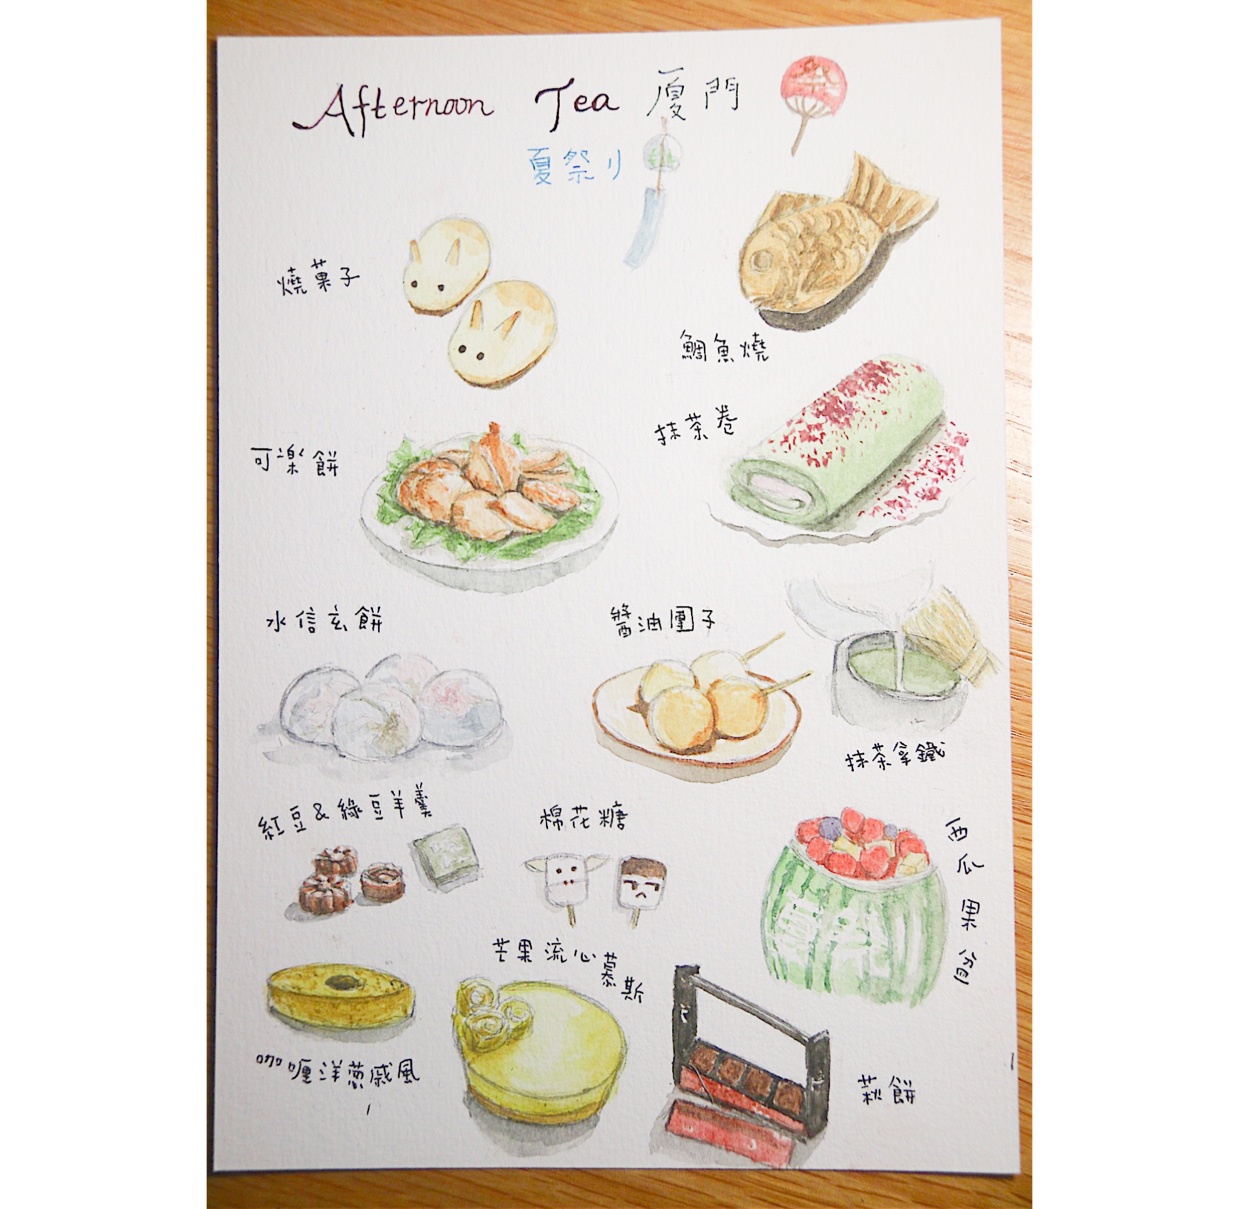 Afternoon Tea 廈門
祭
夏祭り
燒菓子
鯛魚燒
抹茶卷
可樂餅
水信玄餅
醬油團子
抹茶拿鐵
紅豆&綠豆羊羹
棉花糖
西瓜果盆
芒果流心慕斯
咖喱洋蔥戚風
萩餅